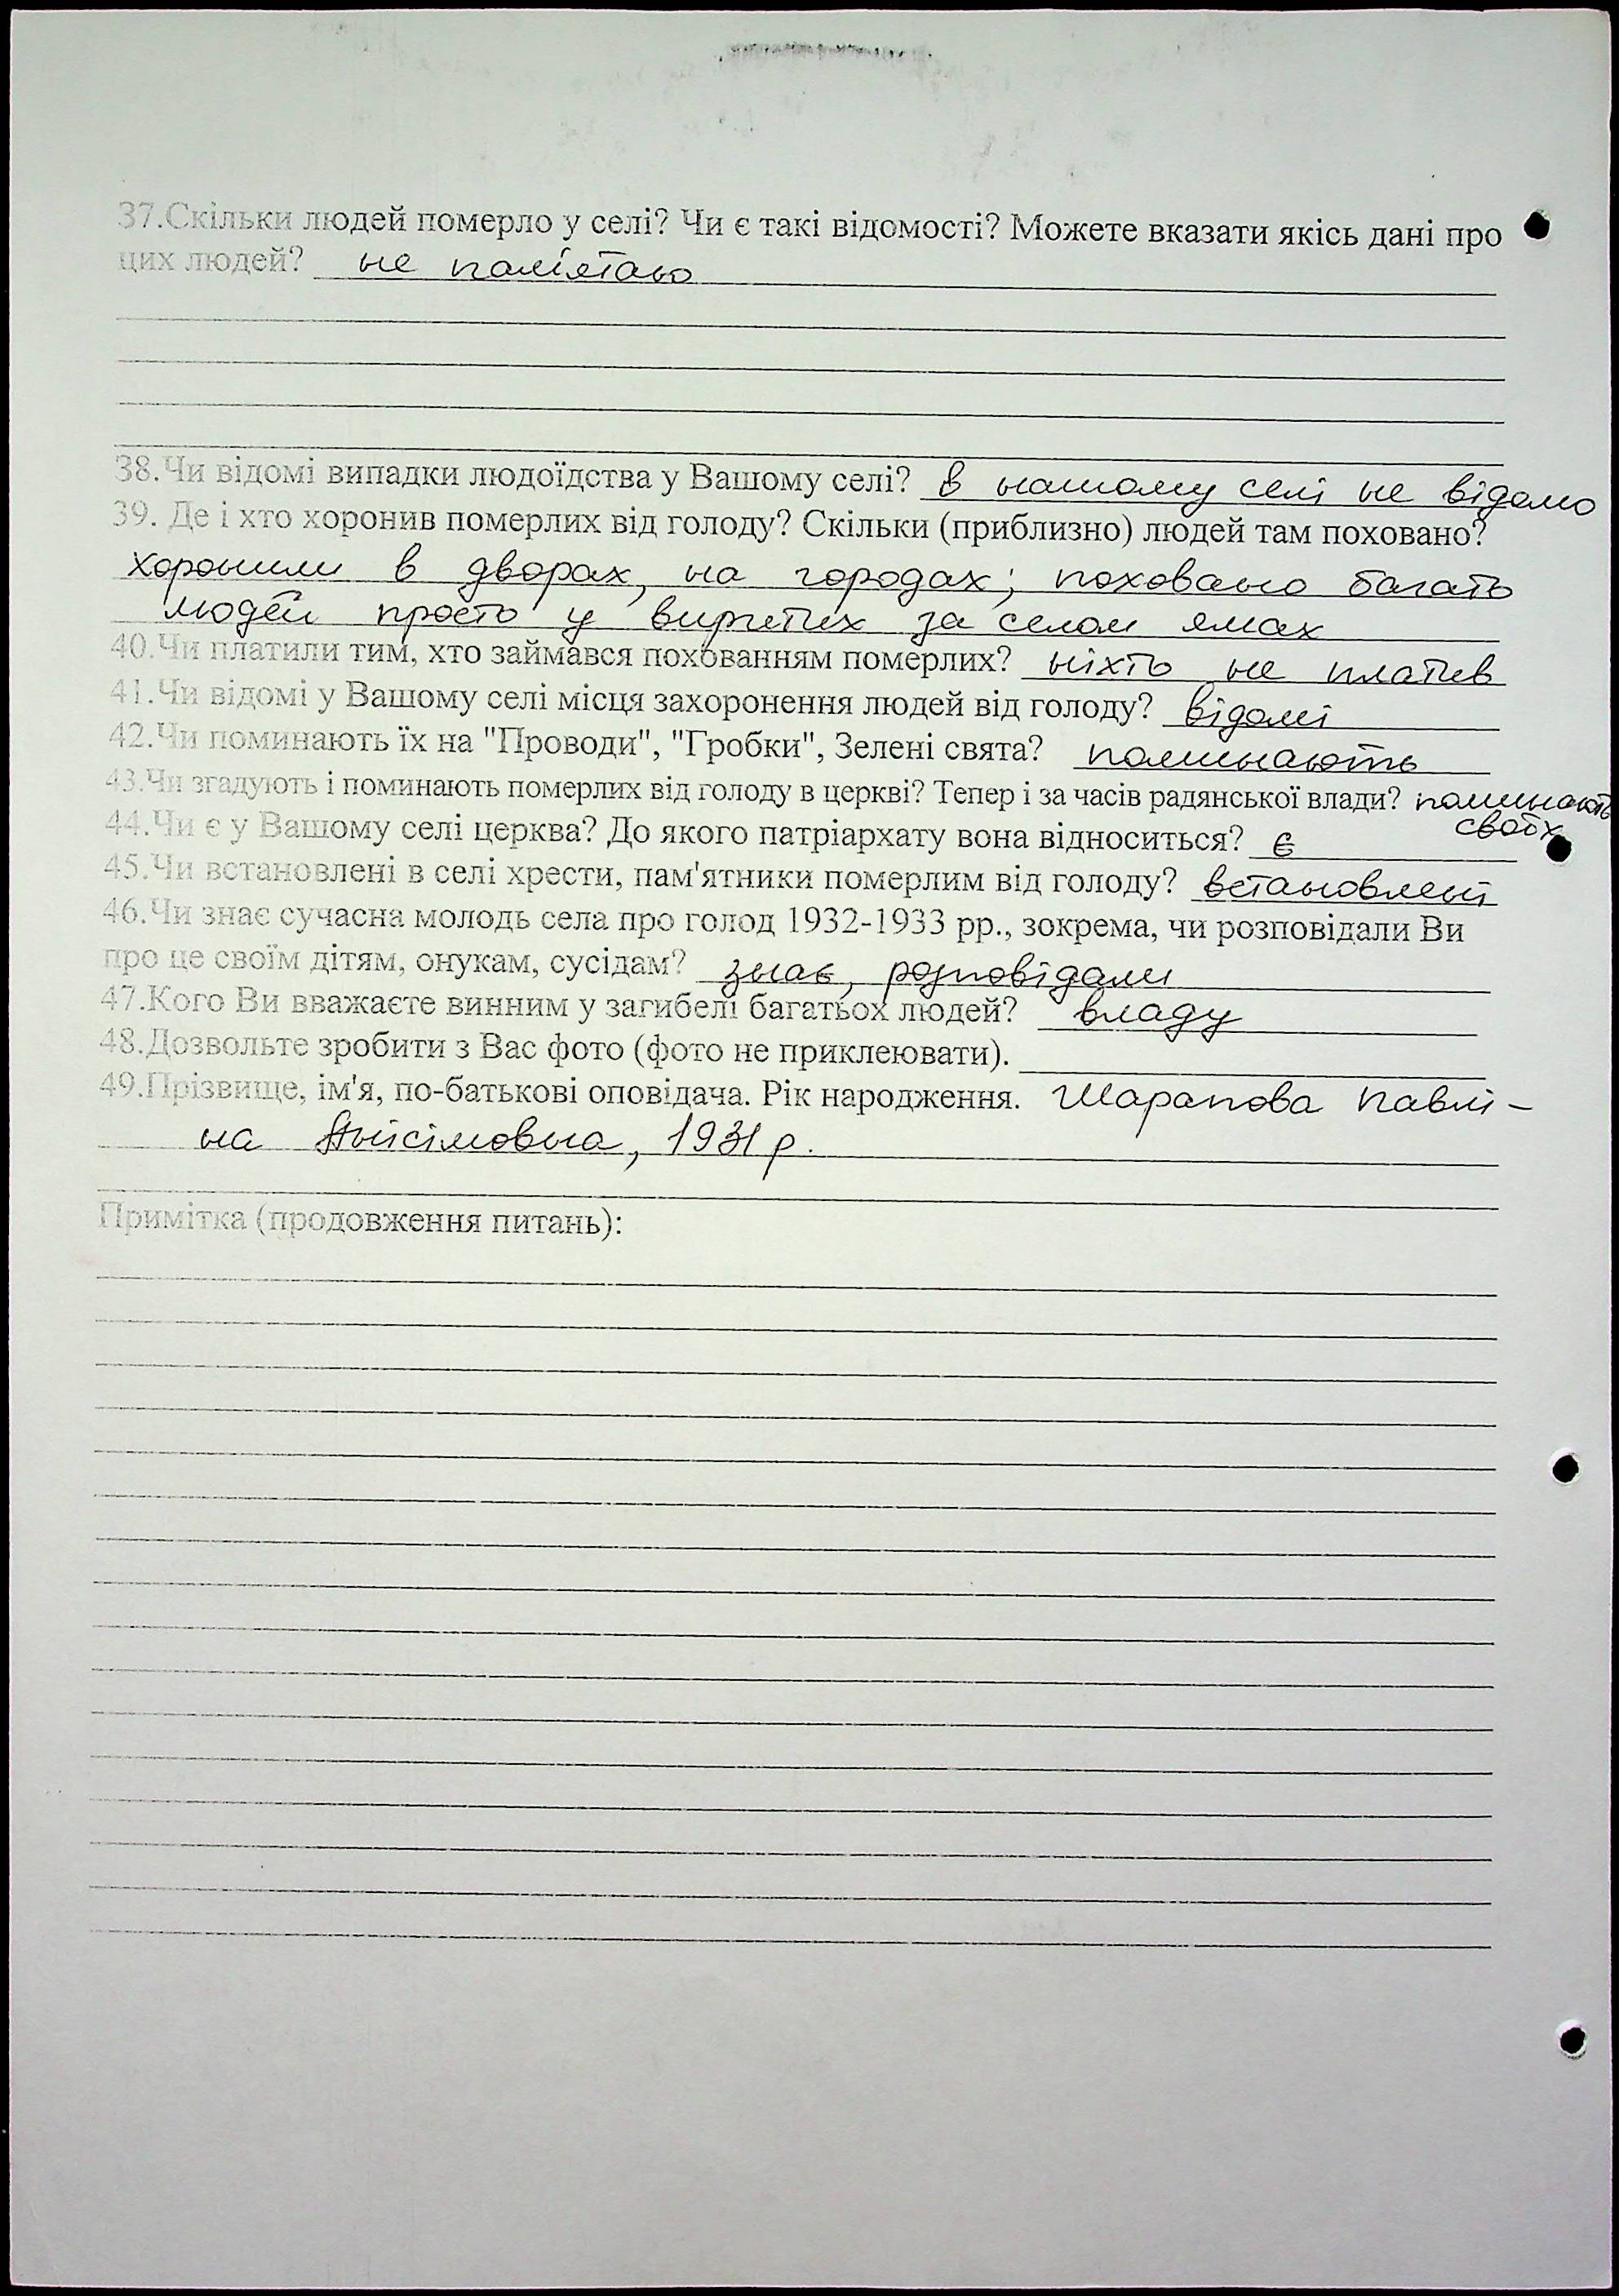 37.Скільки людей померло у селі? Чи є такі відомості? Можете вказати якісь дані про
цих людей? не пам'ятаю
38.Чи відомі випадки людоїдства у Вашому селі? в нашому селі не відомо
39. Де і хто хоронив померлих від голоду? Скільки (приблизно) людей там поховано?
хоронили в дворах, на городах; поховано багато
людей просто у виритих за селом ямах
40.Чи платили тим, хто займався похованням померлих? ніхто не платив
41.Чи відомі у Вашому селі місця захоронення людей від голоду? відомі
42.Чи поминають їх на "Проводи", "Гробки", Зелені свята? поминають
43.Чи згадують і поминають померлих від голоду в церкві? Тепер і за часів радянської влади? поминають
своїх
44.Чи є у Вашому селі церква? До якого патріархату вона відноситься? є
45.Чи встановлені в селі хрести, пам'ятники померлим від голоду? встановлені
46.Чи знає сучасна молодь села про голод 1932-1933 рр., зокрема, чи розповідали Ви
про це своїм дітям, онукам, сусідам? знає, розповідали
47.Кого Ви вважаєте винним у загибелі багатьох людей? владу
48.Дозвольте зробити з Вас фото (фото не приклеювати).
49.Прізвище, ім'я, по-батькові оповідача. Рік народження. Шарапова Павлі-
на Анісімовна, 1931 р.
Примітка (продовження питань):